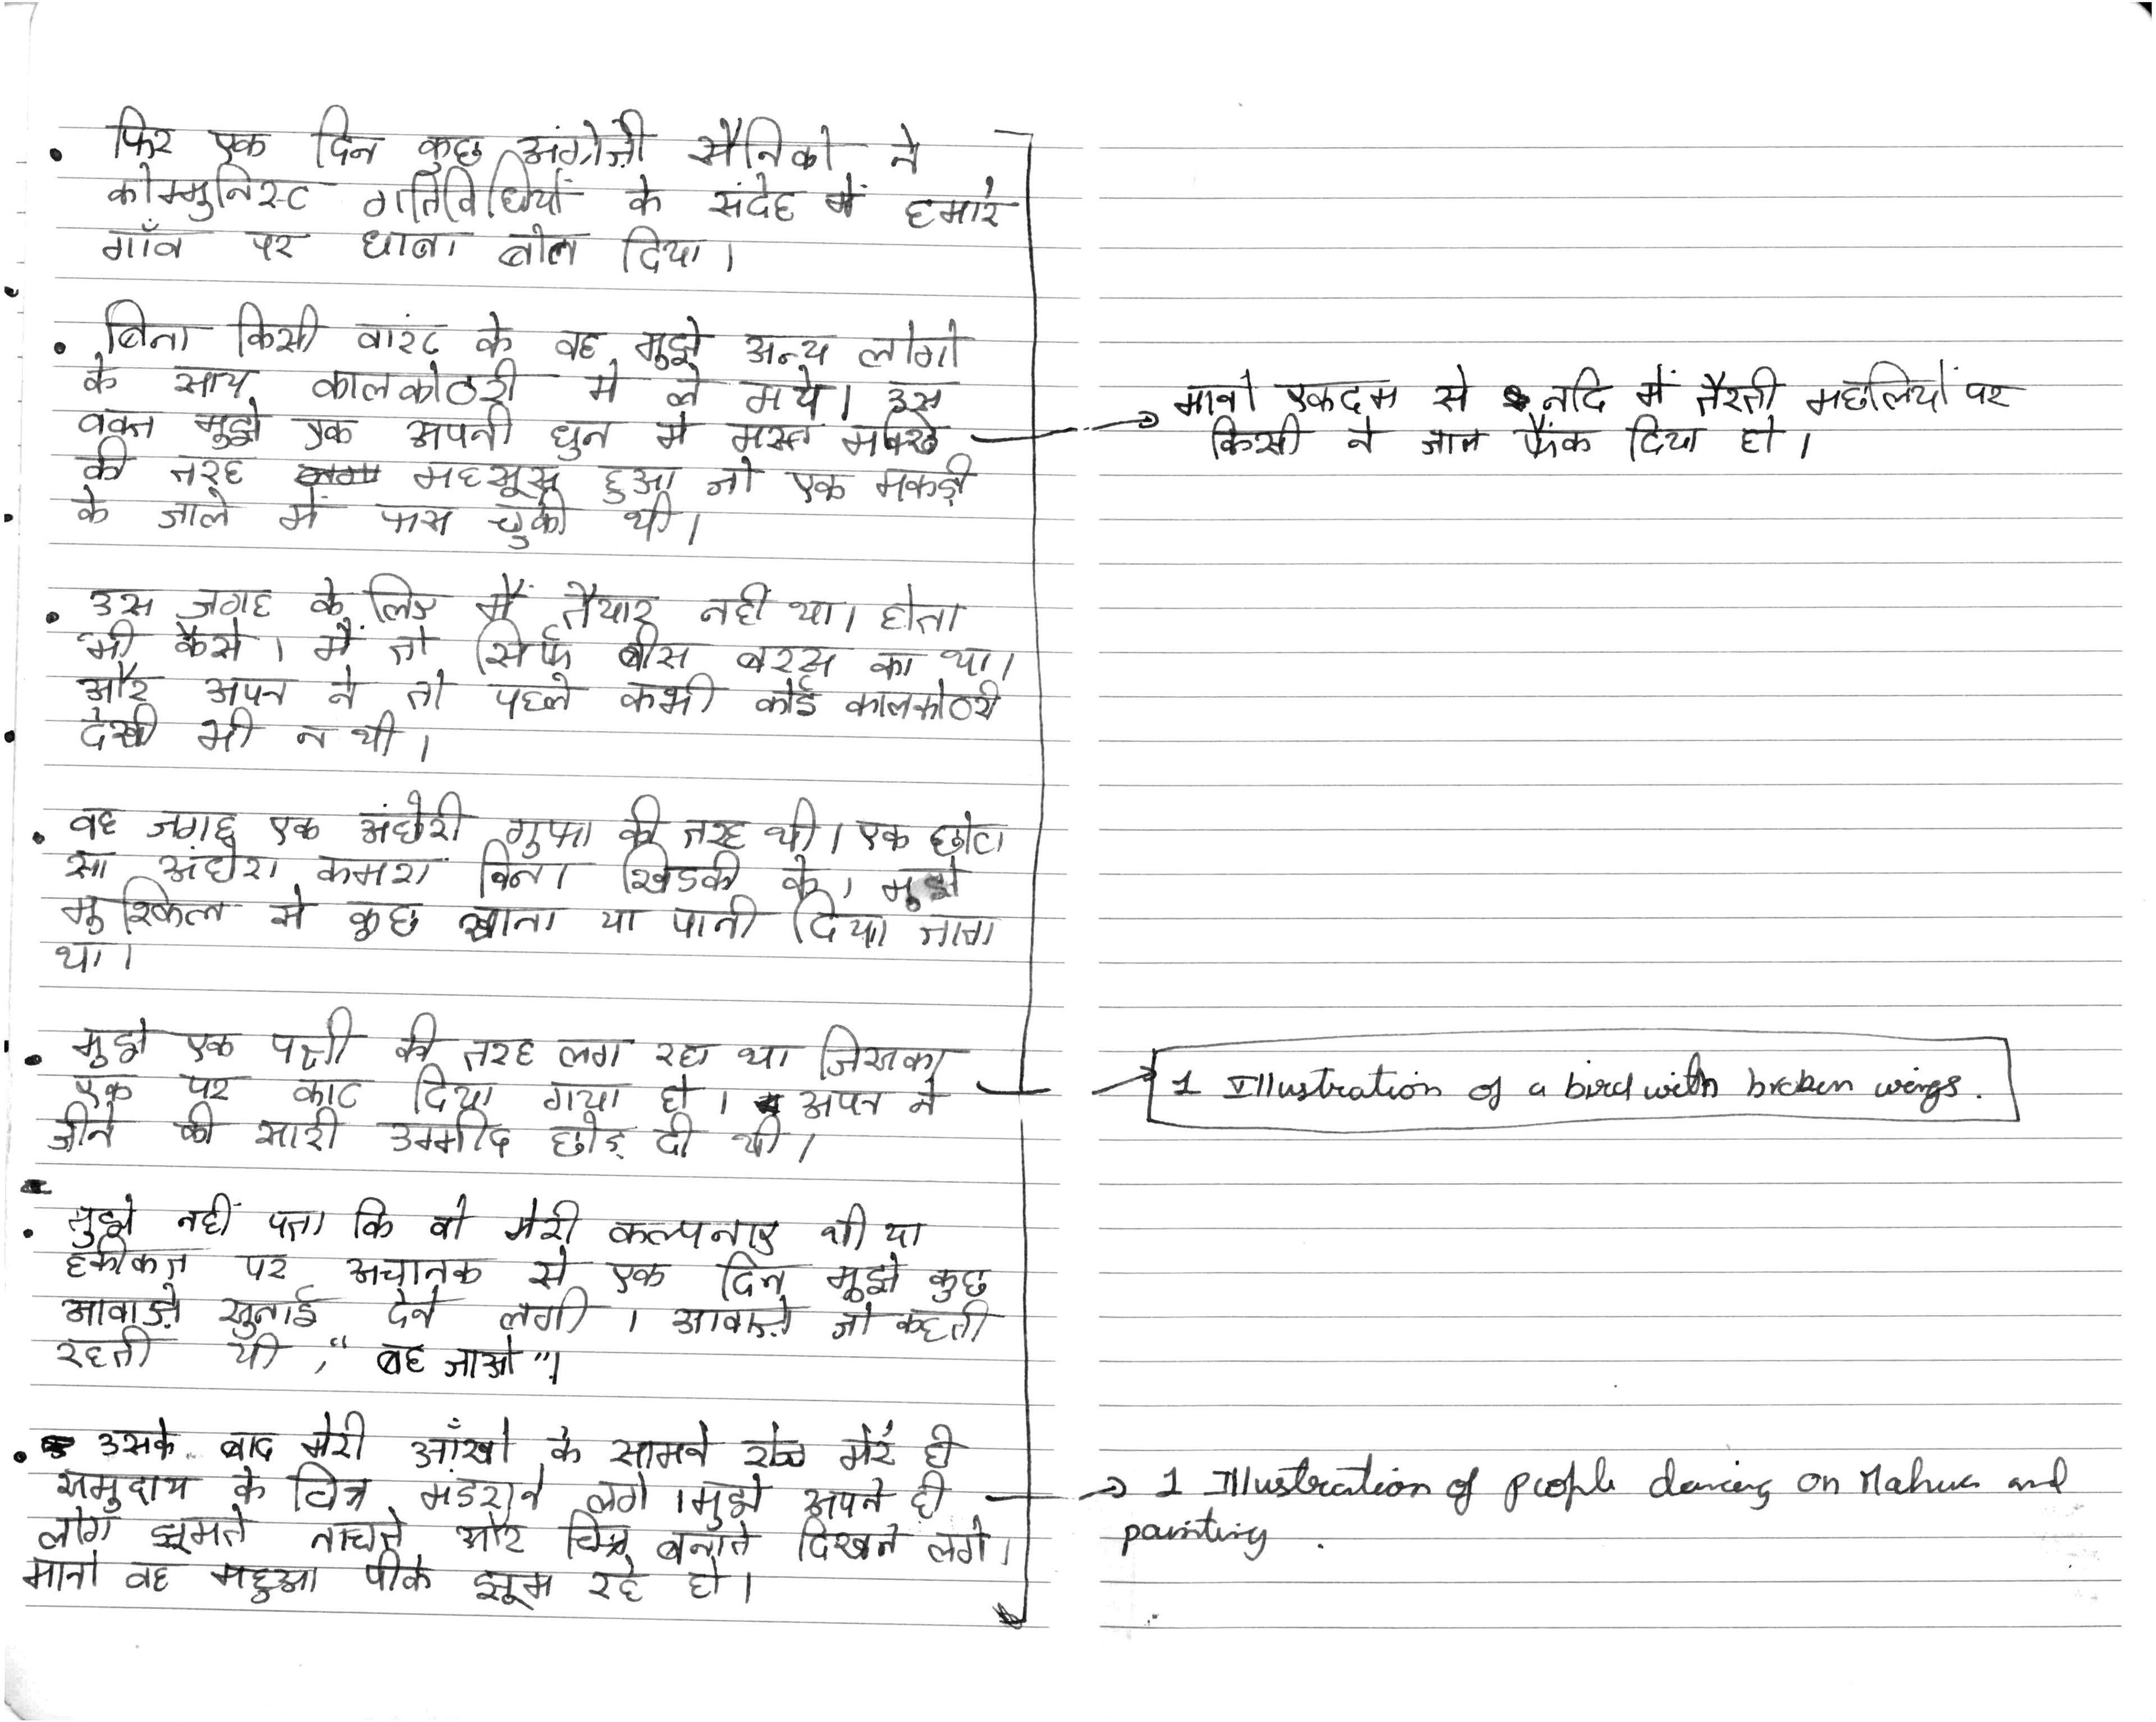 • फिर एक दिन कुछ अंग्रेज़ी सैनिको ने
कोम्मुनिस्ट गतिविधियों के संदेह में हमारे
गाँव पर धावा बोल दिया।
• बिना किसी वारंट के वह मुझे अन्य लोगो
के साथ कालकोठरी मे ले गये। उस
वक्त मुझे एक अपनी धुन मे मस्त
की तरह महसूस हुआ जो एक मकड़ी
के जाले में फास चुकी थी।
मानो एकदम से नदि में तैरती मछलियों पर
किसी ने जाल फैंक दिया हो।
• उस जगह के लिए मैं तैयार नहीं था। होता
भी कैसे। मैं तो सिर्फ बीस बरस का था।
और अपन ने तो पहले कभी कोई कालकोठरी
देखी भी न थी।
• वह जगह एक अंधेरी गुफा की तरह थी। एक छोटा
सा अंधेरा कमरा बिना खिडकी के। मुझे
मुश्किल से कुछ खाना या पानी दिया जाता
था।
• मुझे एक पक्षी की तरह लग रहा था जिसका
एक पर काट दिया गया हो। अपन ने
जीने की सारी उम्मीद छोड़ दी थी।
1 Illustration of a bird with broken wings.
• मुझे नहीं पता कि वो मेरी कल्पनाए थी या
हकीकत पर अचानक से एक दिन मुझे कुछ
आवाज़े सुनाई देने लगी। आवाज़े जो कहती
रहती थी, "बह जाओ"।
• उसके बाद मेरी आँखो के सामने रोज़ मेरे ही
समुदाय के चित्र मंडराने लगे। मुझे अपने ही
लोग झूमते नाचते और चित्र बनाते दिखने लगे।
मानो वह महुआ पीके झूम रहे हो।
→ 1 Illustration of people dancing on Mahua and
painting.